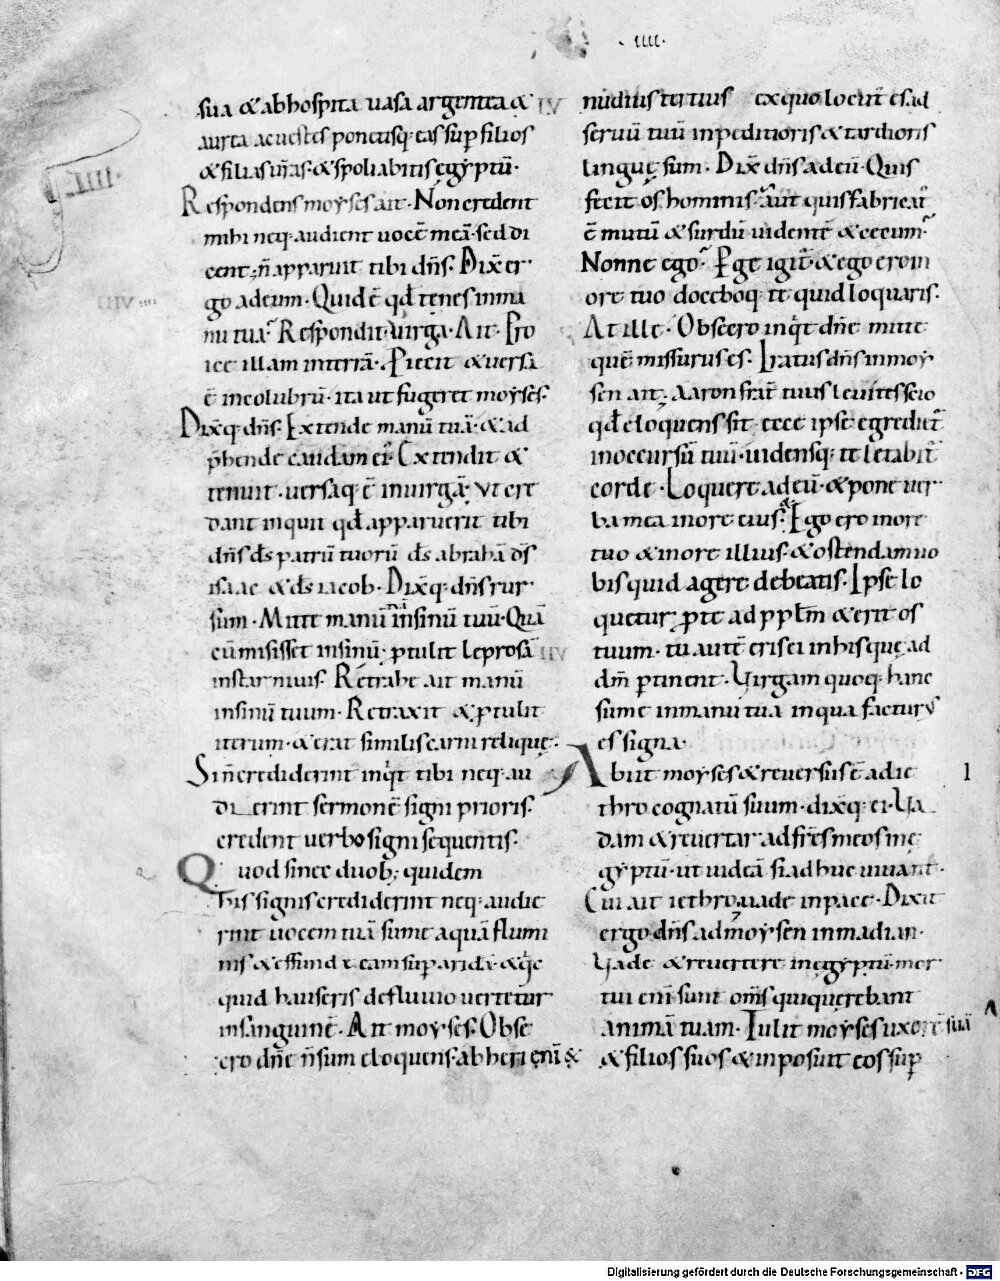 .IIII.
sua & abhospita uasa argentea &
aurea ac uestes ponetisq; eas sup filios
& filias uras. & spoliabitis egyptū.
Respondens moyses ait. Non credent
mihi neq; audient uocē meā. sed di
cent. n̄ apparuit tibi dn̄s. Dix̄ er
go ad eum. Quid ē qd̄ tenes in ma
nu tua? Respondit. uirga. Ait. Pro
ice illam in terrā. Piecit & uersa
ē in colubrū. ita ut fugeret moyses.
Dix̄q; dn̄s. Extende manū tuā. & ad
p̄hende caudam ei'. Extendit &
tenuit. uersaq; ē in uirgā. Vt cre
dant inquit qd̄ apparuerit tibi
dn̄s ds̄ patrū tuorū ds̄ abrahā ds̄
isaac & ds̄ iacob. Dix̄q; dn̄s rur
sum. Mitte manū in sinū tuū. Quā
cū misisset in sinū. ptulit leprosā
instar niuis. Retrahe ait manū
in sinū tuum. Retraxit & ptulit
iterum. & erat similis carni reliquę.
Si n̄ crediderint inq̄t tibi neq; au
dierint sermonē signi prioris.
credent uerbo signi sequentis.
Quod si nec duob; quidem
his signis crediderint neq; audie
rint uocem tuā sume aquā flumi
nis & effunde eam sup aridā. & q̄c
quid hauseris de fluuio uertetur
in sanguinē. Ait moyses. Obse
cro dn̄e n̄ sum eloquens ab heri enī &
nudius tertius ex quo locut' es ad
seruū tuū inpeditioris & tardioris
linguę sum. Dix̄ dn̄s ad eū. Quis
fecit os hominis. aut quis fabricat'
ē mutū & surdū uidentē & cecum?
Nonne ego? Pge igit̄. & ego ero in
ore tuo doceboq; te quid loquaris.
At ille. Obsecro inq̄t dn̄e mitte
quē missurus es. Iratus dn̄s in moy
sen ait. aaron frat̄ tuus leuites scio
qd̄ eloquens sit. ecce ipse egredit̄
in occursū tuū. uidensq; te letabit̄
corde. Loquere ad eū. & pone uer
ba mea in ore eius. & Ego ero in ore
tuo & in ore illius. & ostendam uo
bis quid agere debeatis. Ipse lo
quetur p te ad pplm̄ & erit os
tuum. tu autē eris ei in his quę ad
dm̄ pertinent. Uirgam quoq; hanc
sume in manu tua in qua facturus
es signa.
Abiit moyses & reuersus ē ad ie
thro cognatū suum. dix̄q; ei. Ua
dam & reuertar ad fr̄es meos in e
gyptū. ut uideā si adhuc uiuant.
Cui ait iethro. uade in pace. Dixit
ergo dn̄s ad moysen in madian.
Uade & reuertere in egyptū. mor
tui enī sunt oms̄ qui querebant
animā tuam. Tulit moyses uxorē suā
& filios suos & inposuit eos sup
Digitalisierung gefördert durch die Deutsche Forschungsgemeinschaft - DFG